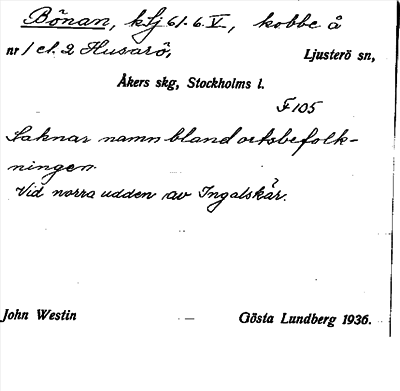 Bönan, kfj 61.6.V, kobbe å
nr 1 el. 2 Husarö, Ljusterö sn,
Åkers skg, Stockholms l.
F 105
Saknar namn bland ortsbefolk-
ningen.
Vid norra udden av Ingalskär.
John Westin – Gösta Lundberg 1936.